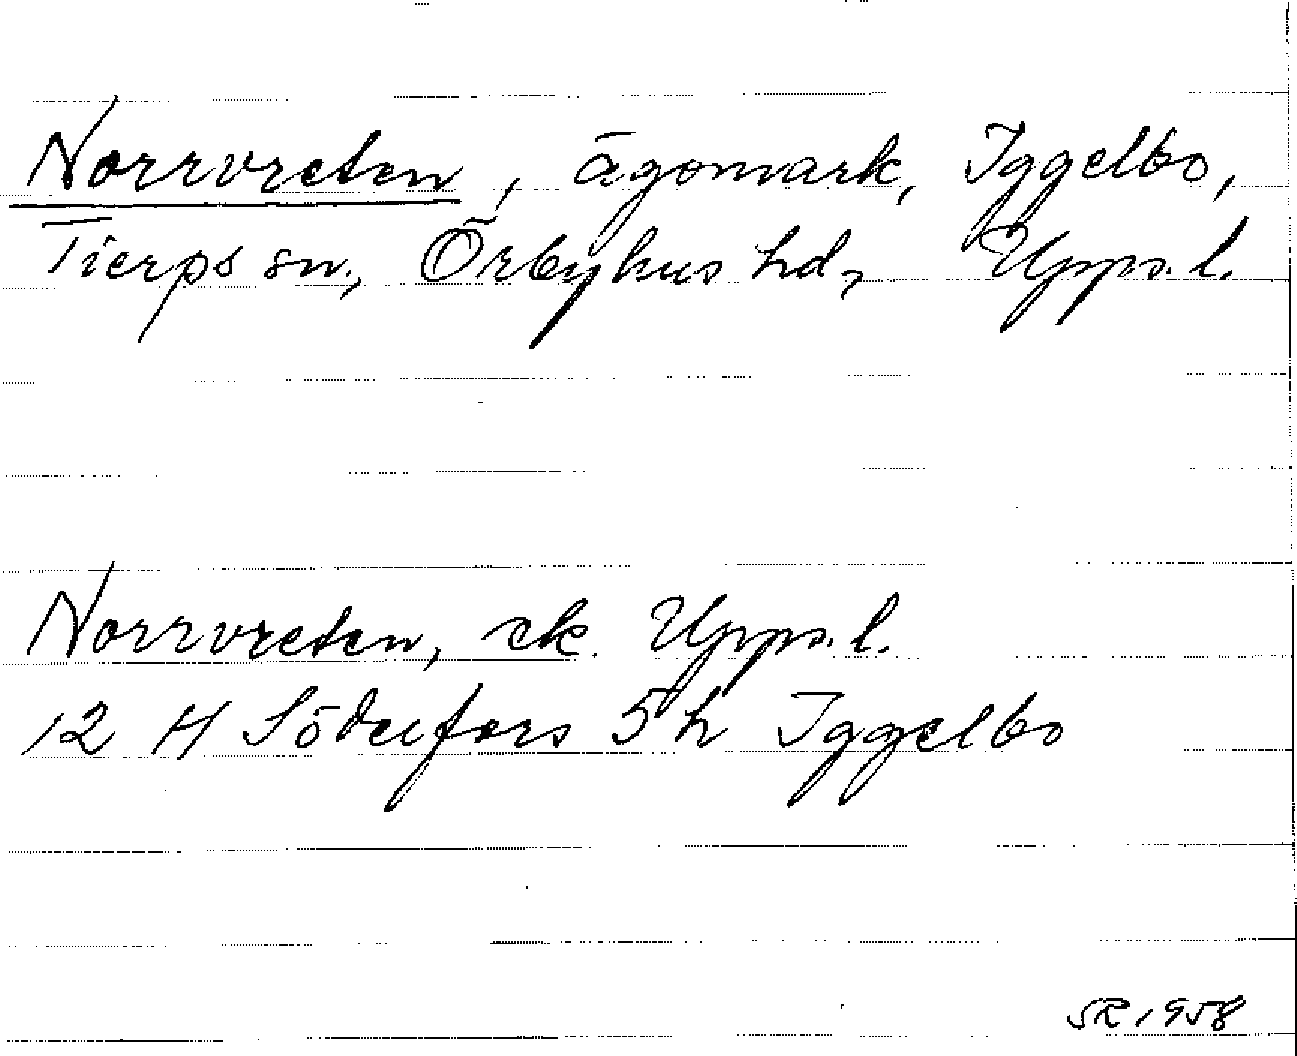 Norrvreten, ägomark, Iggelbo,
Tierps sn., Örbyhus hd, Upps. l.
Norrvreten, ek. Upps. l.
12 H Söderfors 5 h Iggelbo
SR 1958